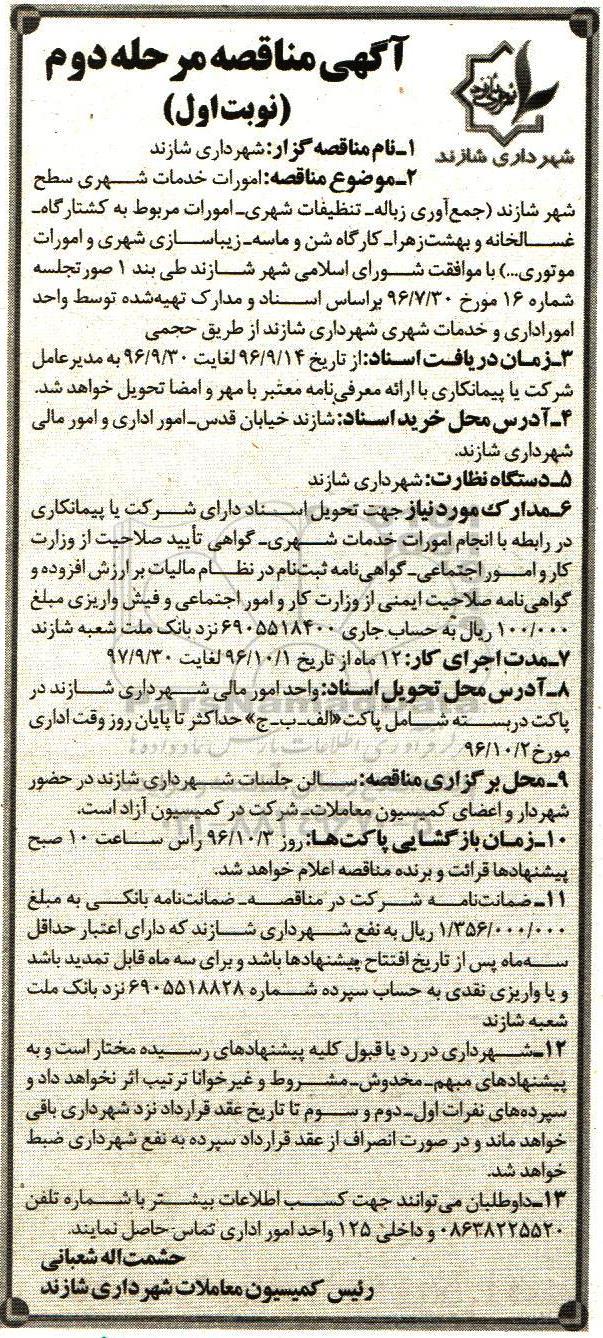 آگهی مناقصه مرحله دوم
(نوبت اول)
شهرداری شازند
۱ـ نام مناقصه گزار: شهرداری شازند
۲ـ موضوع مناقصه: امورات خدمات شهری سطح
شهر شازند (جمع‌آوری زباله ـ تنظیفات شهری ـ امورات مربوط به کشتارگاه ـ
غسالخانه و بهشت‌زهرا ـ کارگاه شن و ماسه ـ زیباسازی شهری و امورات
موتوری...) با موافقت شورای اسلامی شهر شازند طی بند ۱ صورتجلسه
شماره ۱۶ مورخ ۹۶/۷/۳۰ براساس اسناد و مدارک تهیه‌شده توسط واحد
اموراداری و خدمات شهری شهرداری شازند از طریق حجمی
۳ـ زمان دریافت اسناد: از تاریخ ۹۶/۹/۱۴ لغایت ۹۶/۹/۳۰ به مدیرعامل
شرکت یا پیمانکاری با ارائه معرفی‌نامه معتبر با مهر و امضا تحویل خواهد شد.
۴ـ آدرس محل خرید اسناد: شازند خیابان قدس ـ امور اداری و امور مالی
شهرداری شازند.
۵ـ دستگاه نظارت: شهرداری شازند
۶ـ مدارک مورد نیاز جهت تحویل اسناد دارای شرکت یا پیمانکاری
در رابطه با انجام امورات خدمات شهری ـ گواهی تأیید صلاحیت از وزارت
کار و امور اجتماعی ـ گواهی‌نامه ثبت‌نام در نظام مالیات بر ارزش افزوده و
گواهی‌نامه صلاحیت ایمنی از وزارت کار و امور اجتماعی و فیش واریزی مبلغ
۱۰۰/۰۰۰ ریال به حساب جاری ۶۹۰۵۵۱۸۴۰۰ نزد بانک ملت شعبه شازند
۷ـ مدت اجرای کار: ۱۲ ماه از تاریخ ۹۶/۱۰/۱ لغایت ۹۷/۹/۳۰
۸ـ آدرس محل تحویل اسناد: واحد امور مالی شهرداری شازند در
پاکت دربسته شامل پاکت «الف ـ ب ـ ج» حداکثر تا پایان روز وقت اداری
مورخ ۹۶/۱۰/۲
۹ـ محل برگزاری مناقصه: سالن جلسات شهرداری شازند در حضور
شهردار و اعضای کمیسیون معاملات، شرکت در کمیسیون آزاد است.
۱۰ـ زمان بازگشایی پاکت‌ها: روز ۹۶/۱۰/۳ رأس ساعت ۱۰ صبح
پیشنهادها قرائت و برنده مناقصه اعلام خواهد شد.
۱۱ـ ضمانت‌نامه شرکت در مناقصه ـ ضمانت‌نامه بانکی به مبلغ
۱/۳۵۶/۰۰۰/۰۰۰ ریال به نفع شهرداری شازند که دارای اعتبار حداقل
سه‌ماه پس از تاریخ افتتاح پیشنهادها باشد و برای سه ماه قابل تمدید باشد
و یا واریزی نقدی به حساب سپرده شماره ۶۹۰۵۵۱۸۸۲۸ نزد بانک ملت
شعبه شازند
۱۲ـ شهرداری در رد یا قبول کلیه پیشنهادهای رسیده مختار است و به
پیشنهادهای مبهم ـ مخدوش ـ مشروط و غیرخوانا ترتیب اثر نخواهد داد و
سپرده‌های نفرات اول ـ دوم و سوم تا تاریخ عقد قرارداد نزد شهرداری باقی
خواهد ماند و در صورت انصراف از عقد قرارداد سپرده به نفع شهرداری ضبط
خواهد شد.
۱۳ـ داوطلبان می‌توانند جهت کسب اطلاعات بیشتر با شماره تلفن
۰۸۶۳۸۲۲۵۵۲۰ و داخلی ۱۲۵ واحد امور اداری تماس حاصل نمایند.
حشمت‌اله شعبانی
رئیس کمیسیون معاملات شهرداری شازند